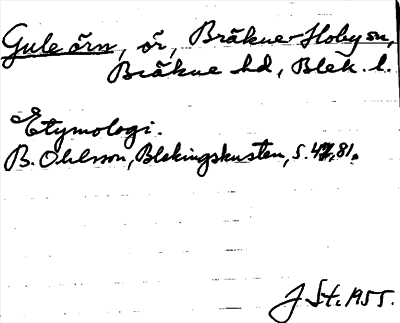 Gule örn, ör, Bräkne-Hoby sn,
Bräkne hd, Blek. l.
Etymologi.
B. Ohlsson, Blekingskusten, s. 47, 81.
J. St. 1955.